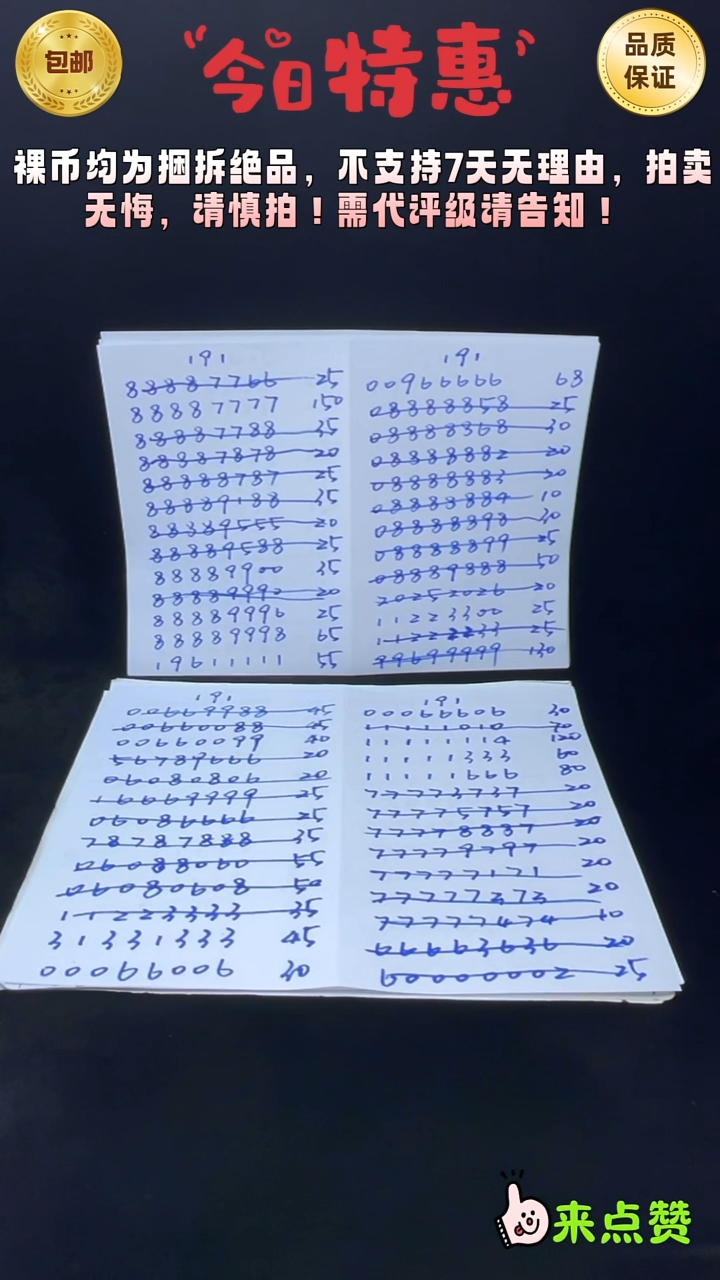 包邮
今日特惠
品质
保证
裸币均为捆拆绝品，不支持7天无理由，拍卖
无悔，请慎拍！需代评级请告知！
191
88887766 25
88887777 150
88887788 35
88887878 20
88888787 25
88889188 35
88889555 20
88889588 25
88889900 35
88889990 20
88889996 25
88889998 65
19611111 55
191
00966666 68
08888858 25
08888868 30
08888882 20
08888883 30
08888884 10
08888898 30
08888899 25
08889888 50
20252026 20
11223300 25
11222233 25
99699999 130
191
00669988 45
00660088 45
00660099 40
56789666 20
06080806 20
16669999 25
06086666 25
78787888 35
06088060 55
06080608 50
11223333 35
31331333 45
00066006 30
191
00066606 30
11111010 70
11111114 120
11111333 60
11111666 80
77773737 20
77775757 20
77778887 20
77779797 20
77777171 20
77777373 20
77777474 10
66663636 20
60000002 25
来点赞